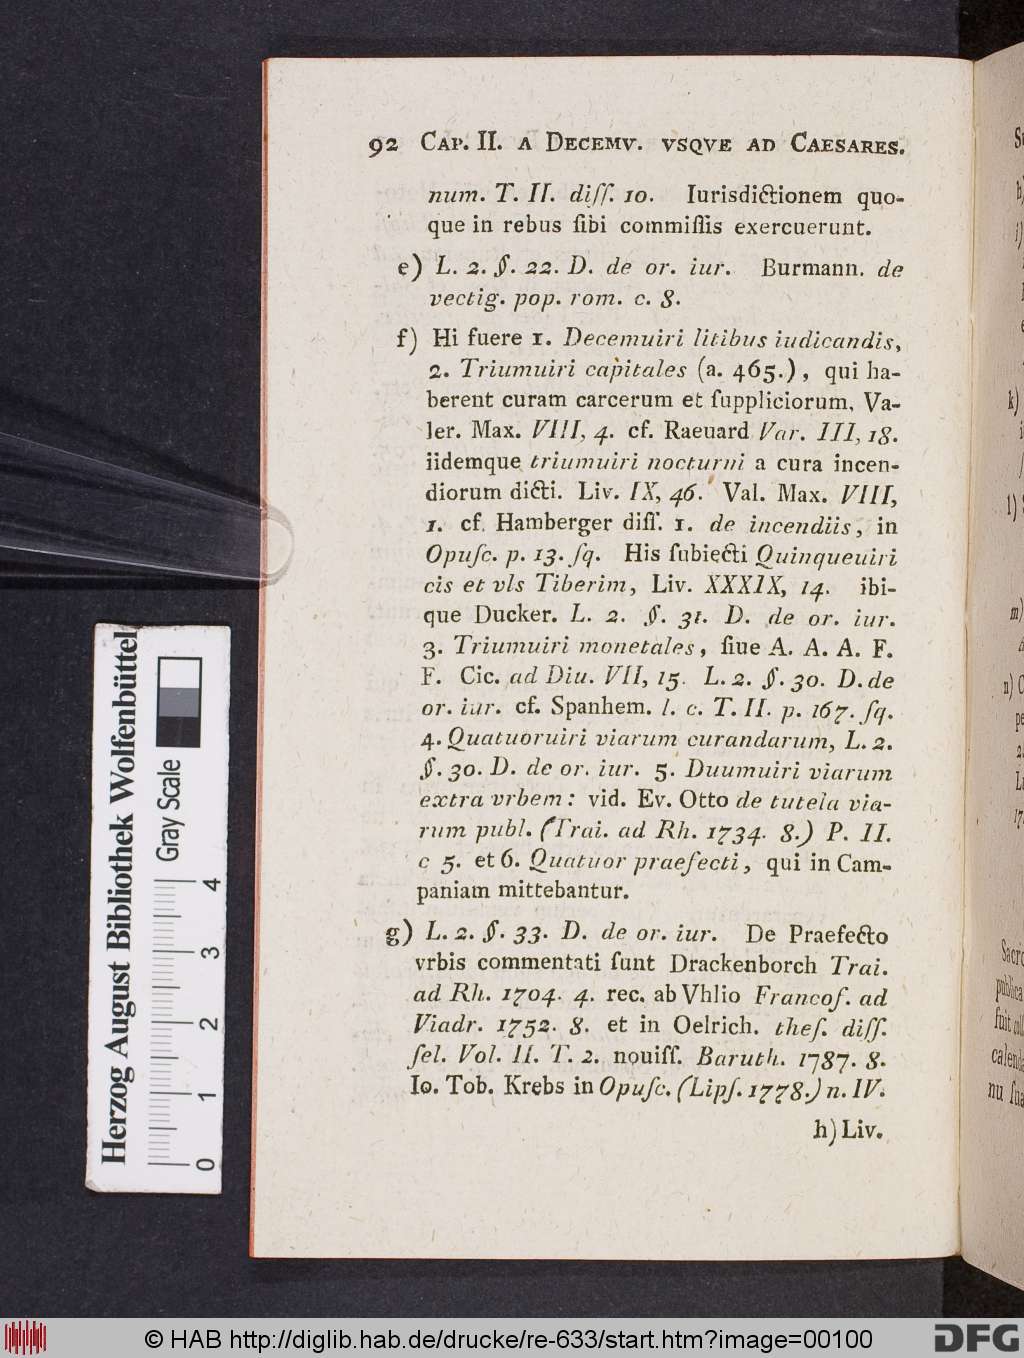 92 CAP. II. A DECEMV. VSQVE AD CAESARES.
num. T. II. diſſ. 10. Iurisdictionem quo-
que in rebus ſibi commiſſis exercuerunt.
e) L. 2. §. 22. D. de or. iur. Burmann. de
vectig. pop. rom. c. 8.
f) Hi fuere 1. Decemuiri litibus iudicandis,
2. Triumuiri capitales (a. 465.), qui ha-
berent curam carcerum et ſuppliciorum, Va-
ler. Max. VIII, 4. cf. Raeuard Var. III, 18.
iidemque triumuiri nocturni a cura incen-
diorum dicti. Liv. IX, 46. Val. Max. VIII,
1. cf. Hamberger diſſ. 1. de incendiis, in
Opuſc. p. 13. ſq. His ſubiecti Quinqueuiri
cis et vls Tiberim, Liv. XXXIX, 14. ibi-
que Ducker. L. 2. §. 31. D. de or. iur.
3. Triumuiri monetales, ſiue A. A. A. F.
F. Cic. ad Diu. VII, 15. L. 2. §. 30. D. de
or. iur. cf. Spanhem. l. c. T. II. p. 167. ſq.
4. Quatuoruiri viarum curandarum, L. 2.
§. 30. D. de or. iur. 5. Duumuiri viarum
extra vrbem: vid. Ev. Otto de tutela via-
rum publ. (Trai. ad Rh. 1734. 8.) P. II.
c 5. et 6. Quatuor praefecti, qui in Cam-
paniam mittebantur.
g) L. 2. §. 33. D. de or. iur. De Praefecto
vrbis commentati ſunt Drackenborch Trai.
ad Rh. 1704. 4. rec. ab Vhlio Francof. ad
Viadr. 1752. 8. et in Oelrich. theſ. diſſ.
ſel. Vol. II. T. 2. nouiſſ. Baruth. 1787. 8.
Io. Tob. Krebs in Opuſc. (Lipſ. 1778.) n. IV.
h) Liv.
k)
l)
m)
n)
Sacro
publica
fuit
calenda
nu
Herzog August Bibliothek Wolfenbüttel
Gray Scale
0 1 2 3 4
© HAB http://diglib.hab.de/drucke/re-633/start.htm?image=00100
DFG